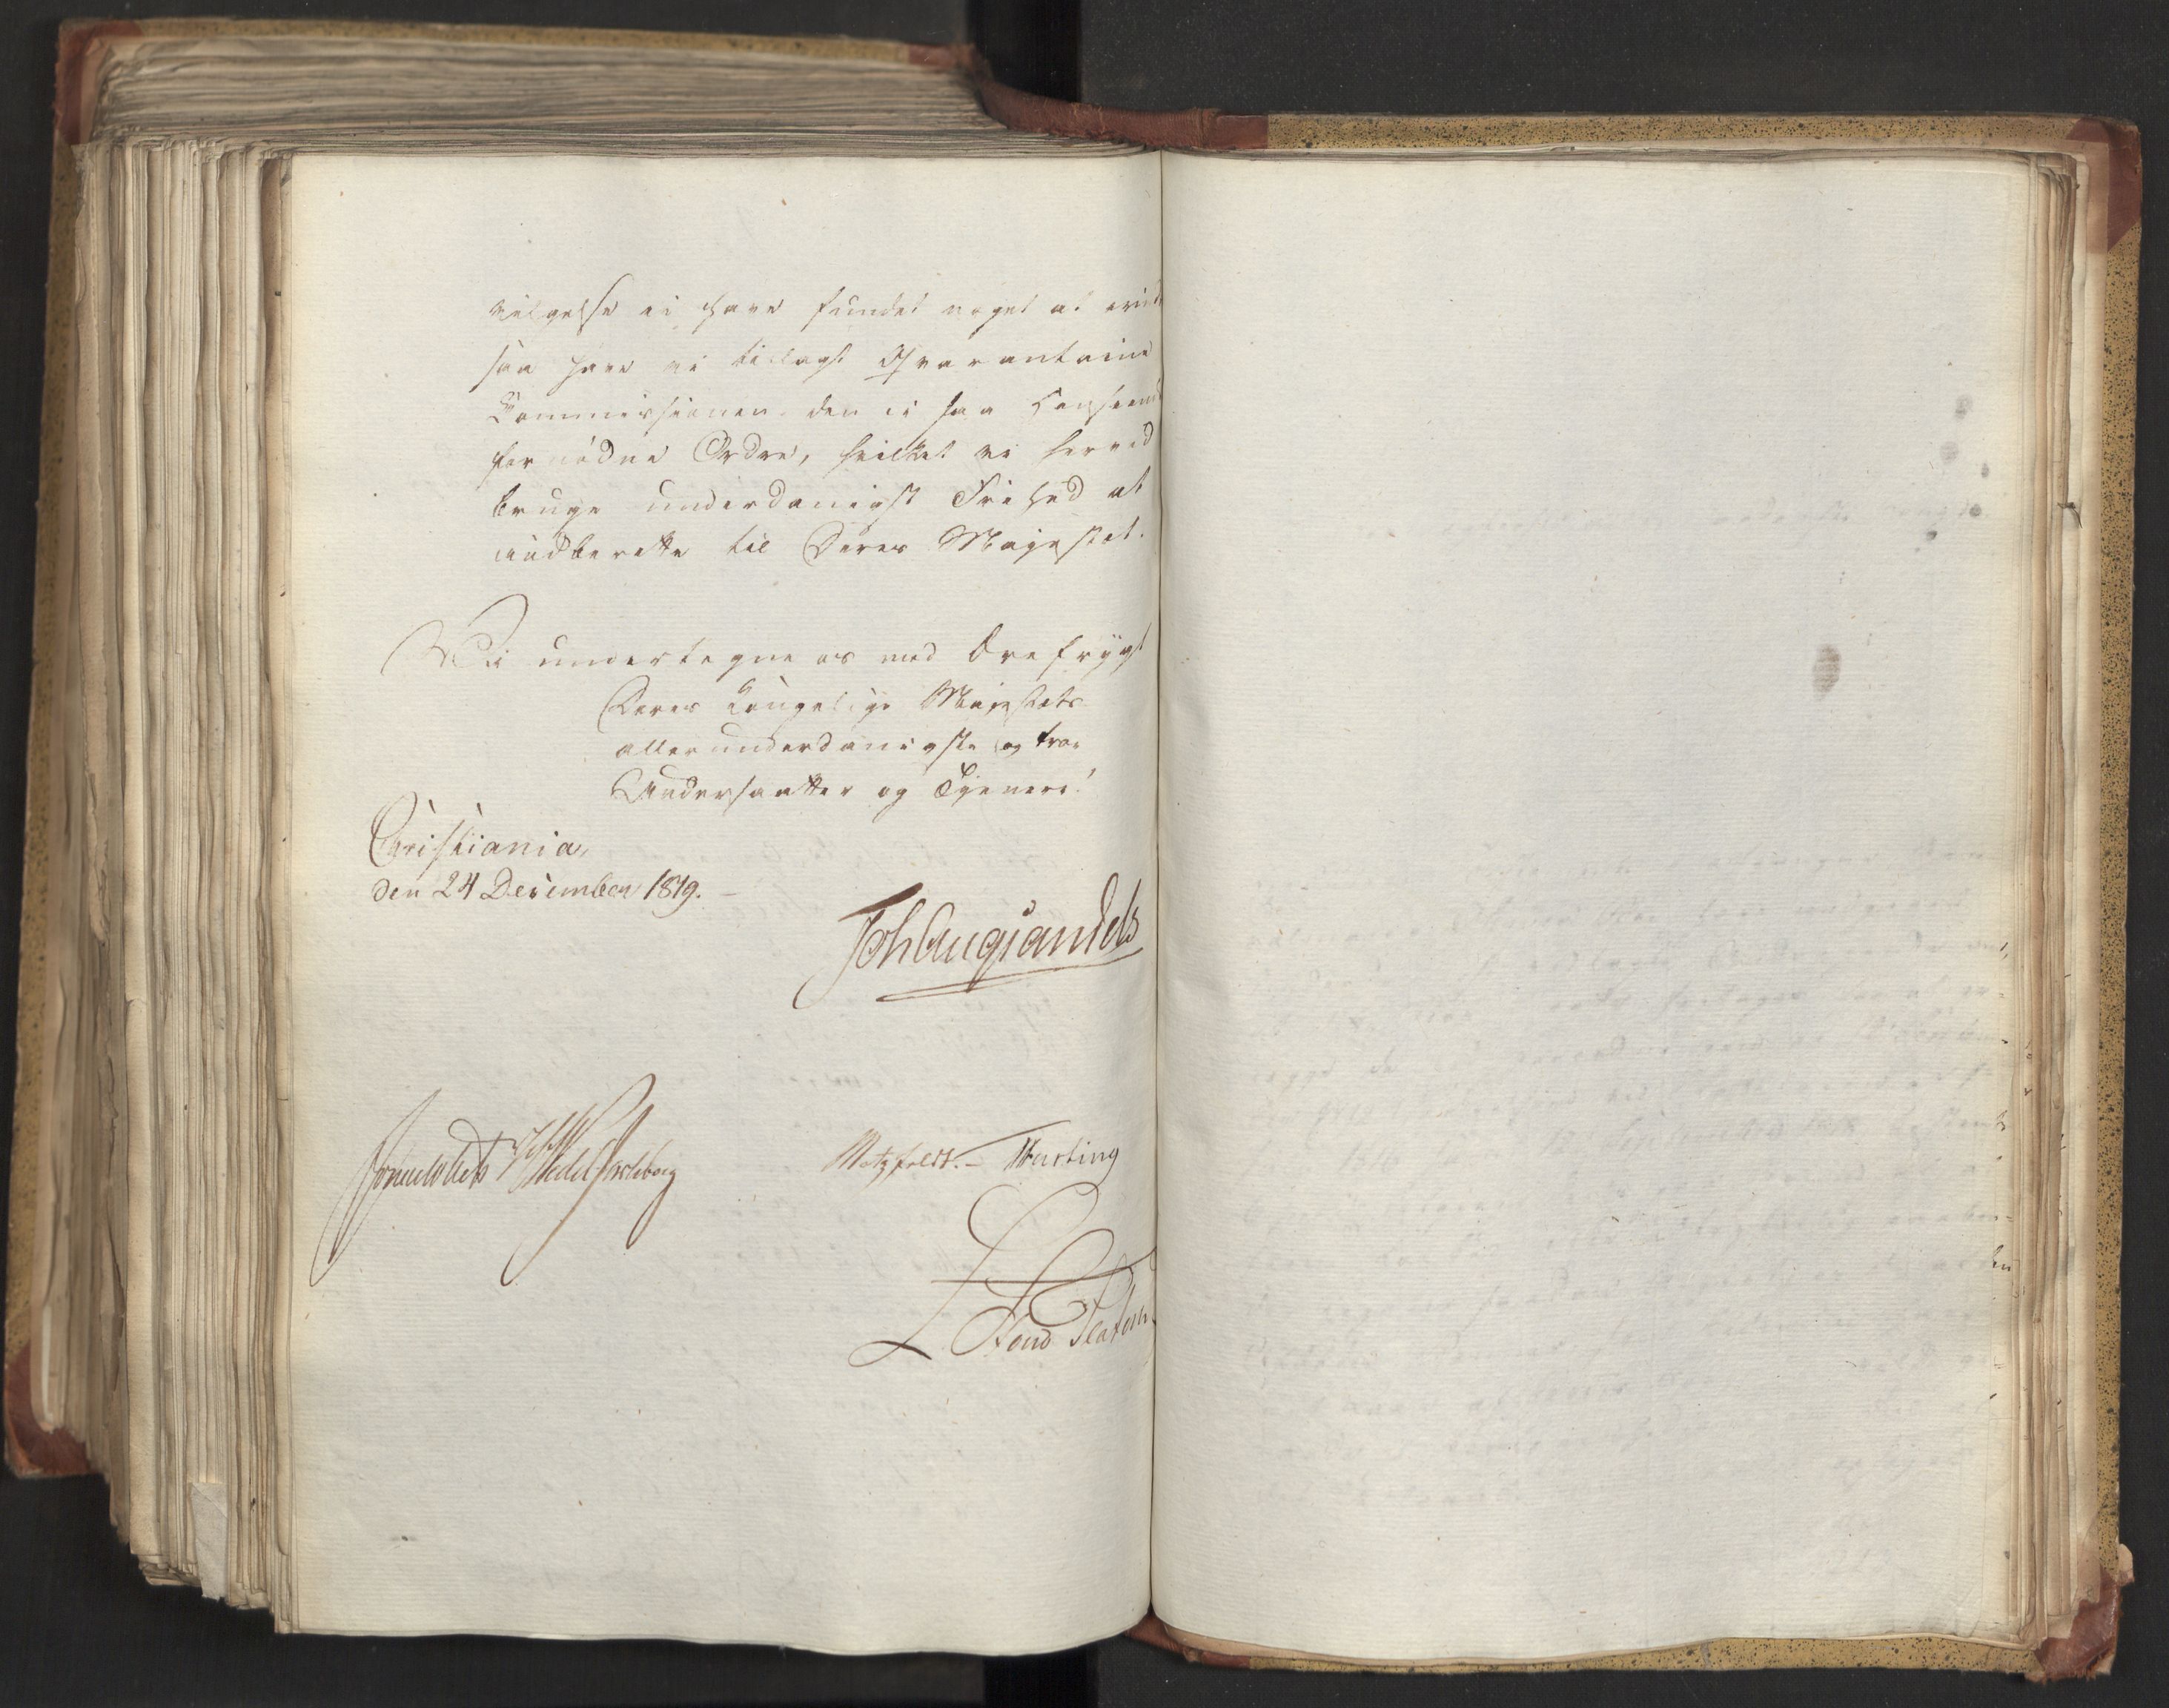 velgelse ei have fundet noget at erin
saa have vi tillagt Qvarantaine
Commissionen den i saa Henseende
fornødne Ordre, hvilket vi herved
bruge underdanigst Frihed at
indberette til Deres Majestæt.
Vi undertegne os med Ærefrygt
Deres Kongelige Majestæts
allerunderdanigste og troe
Undersaatter og Tjenere!
Christiania,
den 24 December 1819. –
Joh Aug Sandels
Sommerhielm Wedel Jarlsberg
Motzfeldt. – Fasting
L
von Platen